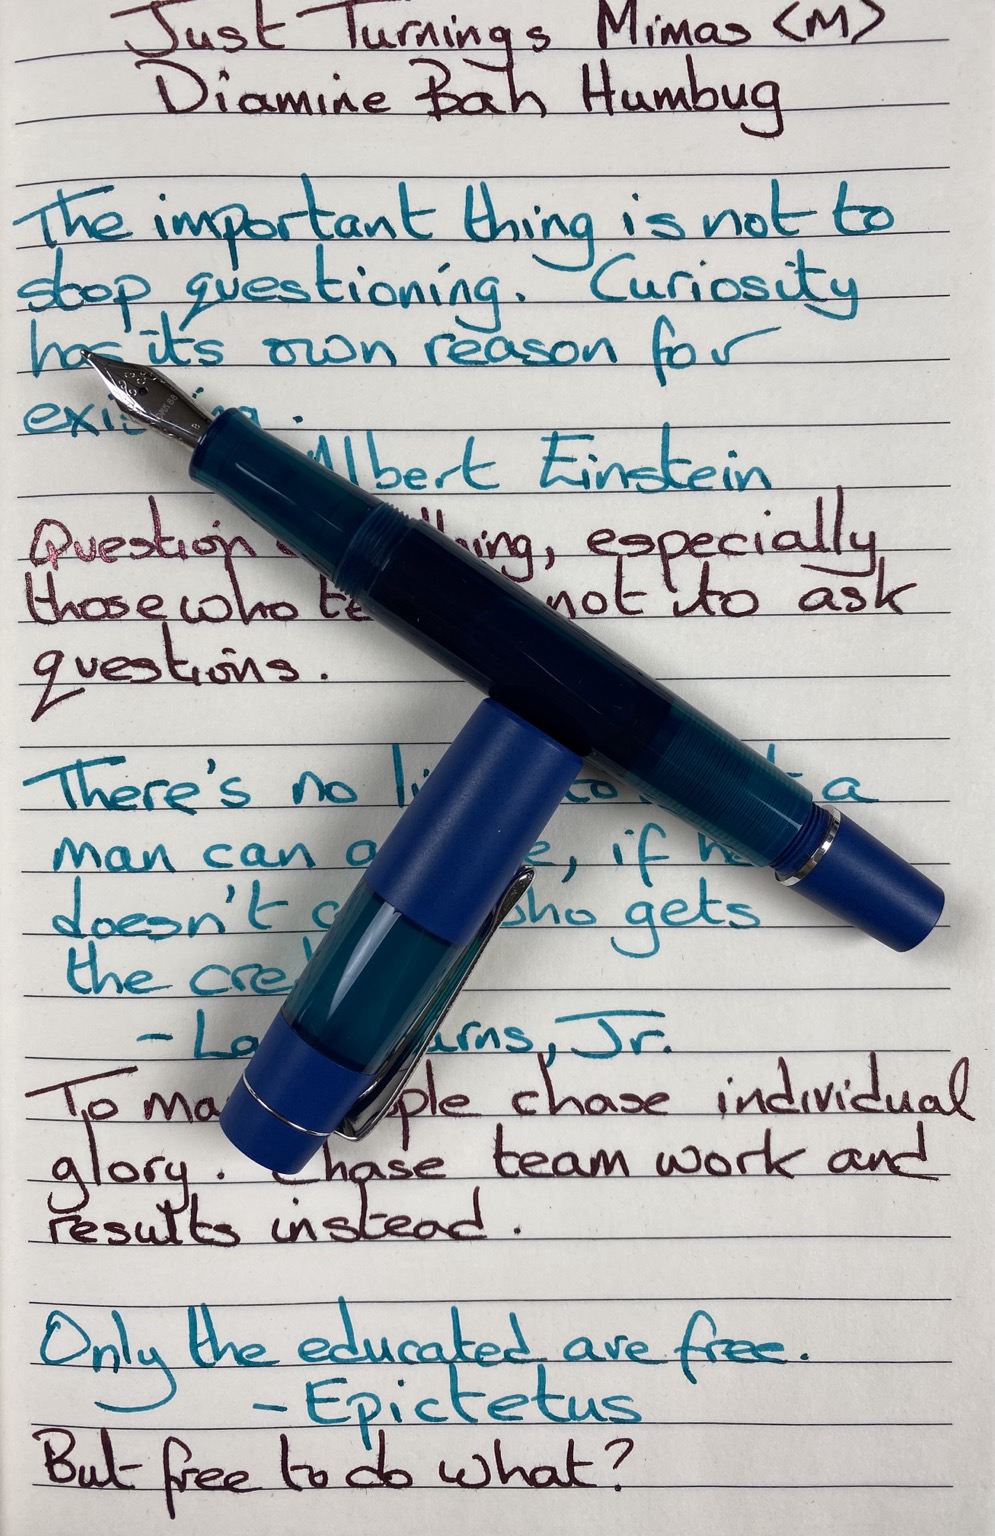 Just Turnings Mimas <M>
Diamine Bah Humbug
The important thing is not to
stop questioning. Curiosity
has its own reason for
Albert Einstein
Question especially
those who not to ask
questions.
There's no a
man can if
doesn't who gets
the
- Jr.
To chase individual
glory. Chase team work and
results instead.
Only the educated are free.
- Epictetus
But free to do what?